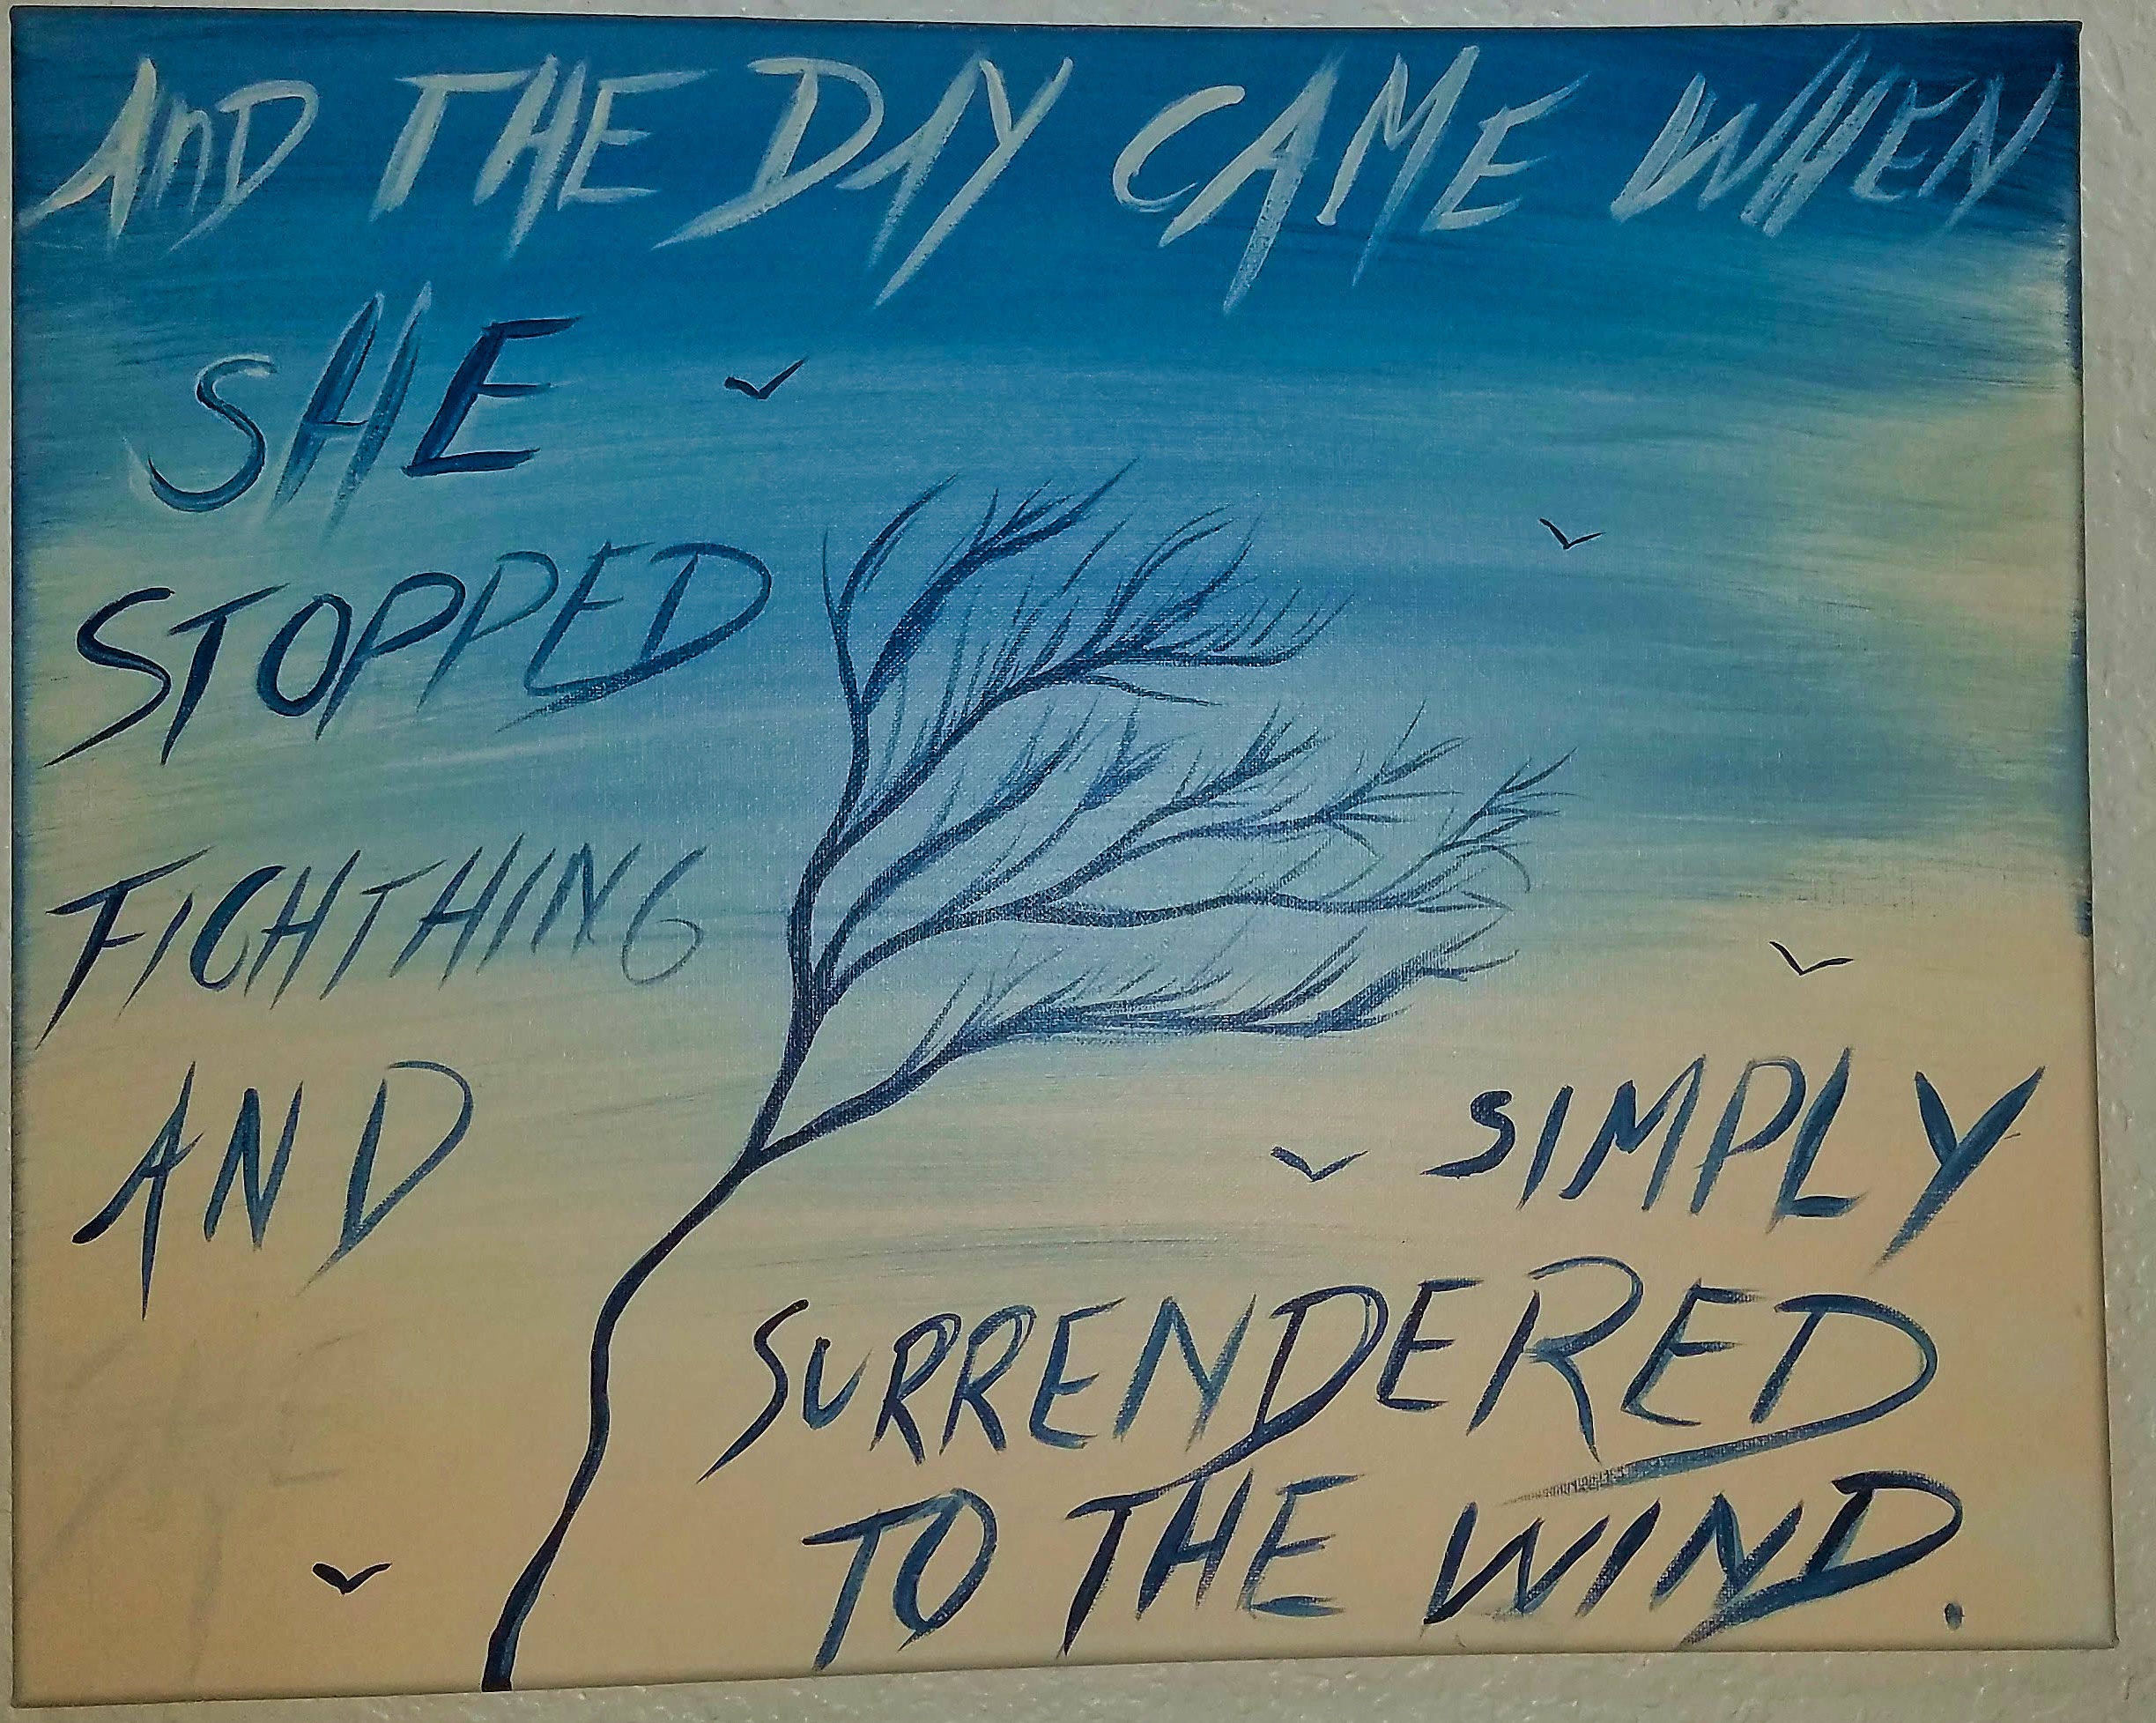 AnD THE DAY CAME WHEN
SHE
STOPPED
FIGHTHING
AND
SIMPLY
SURRENDERED
TO THE WIND.